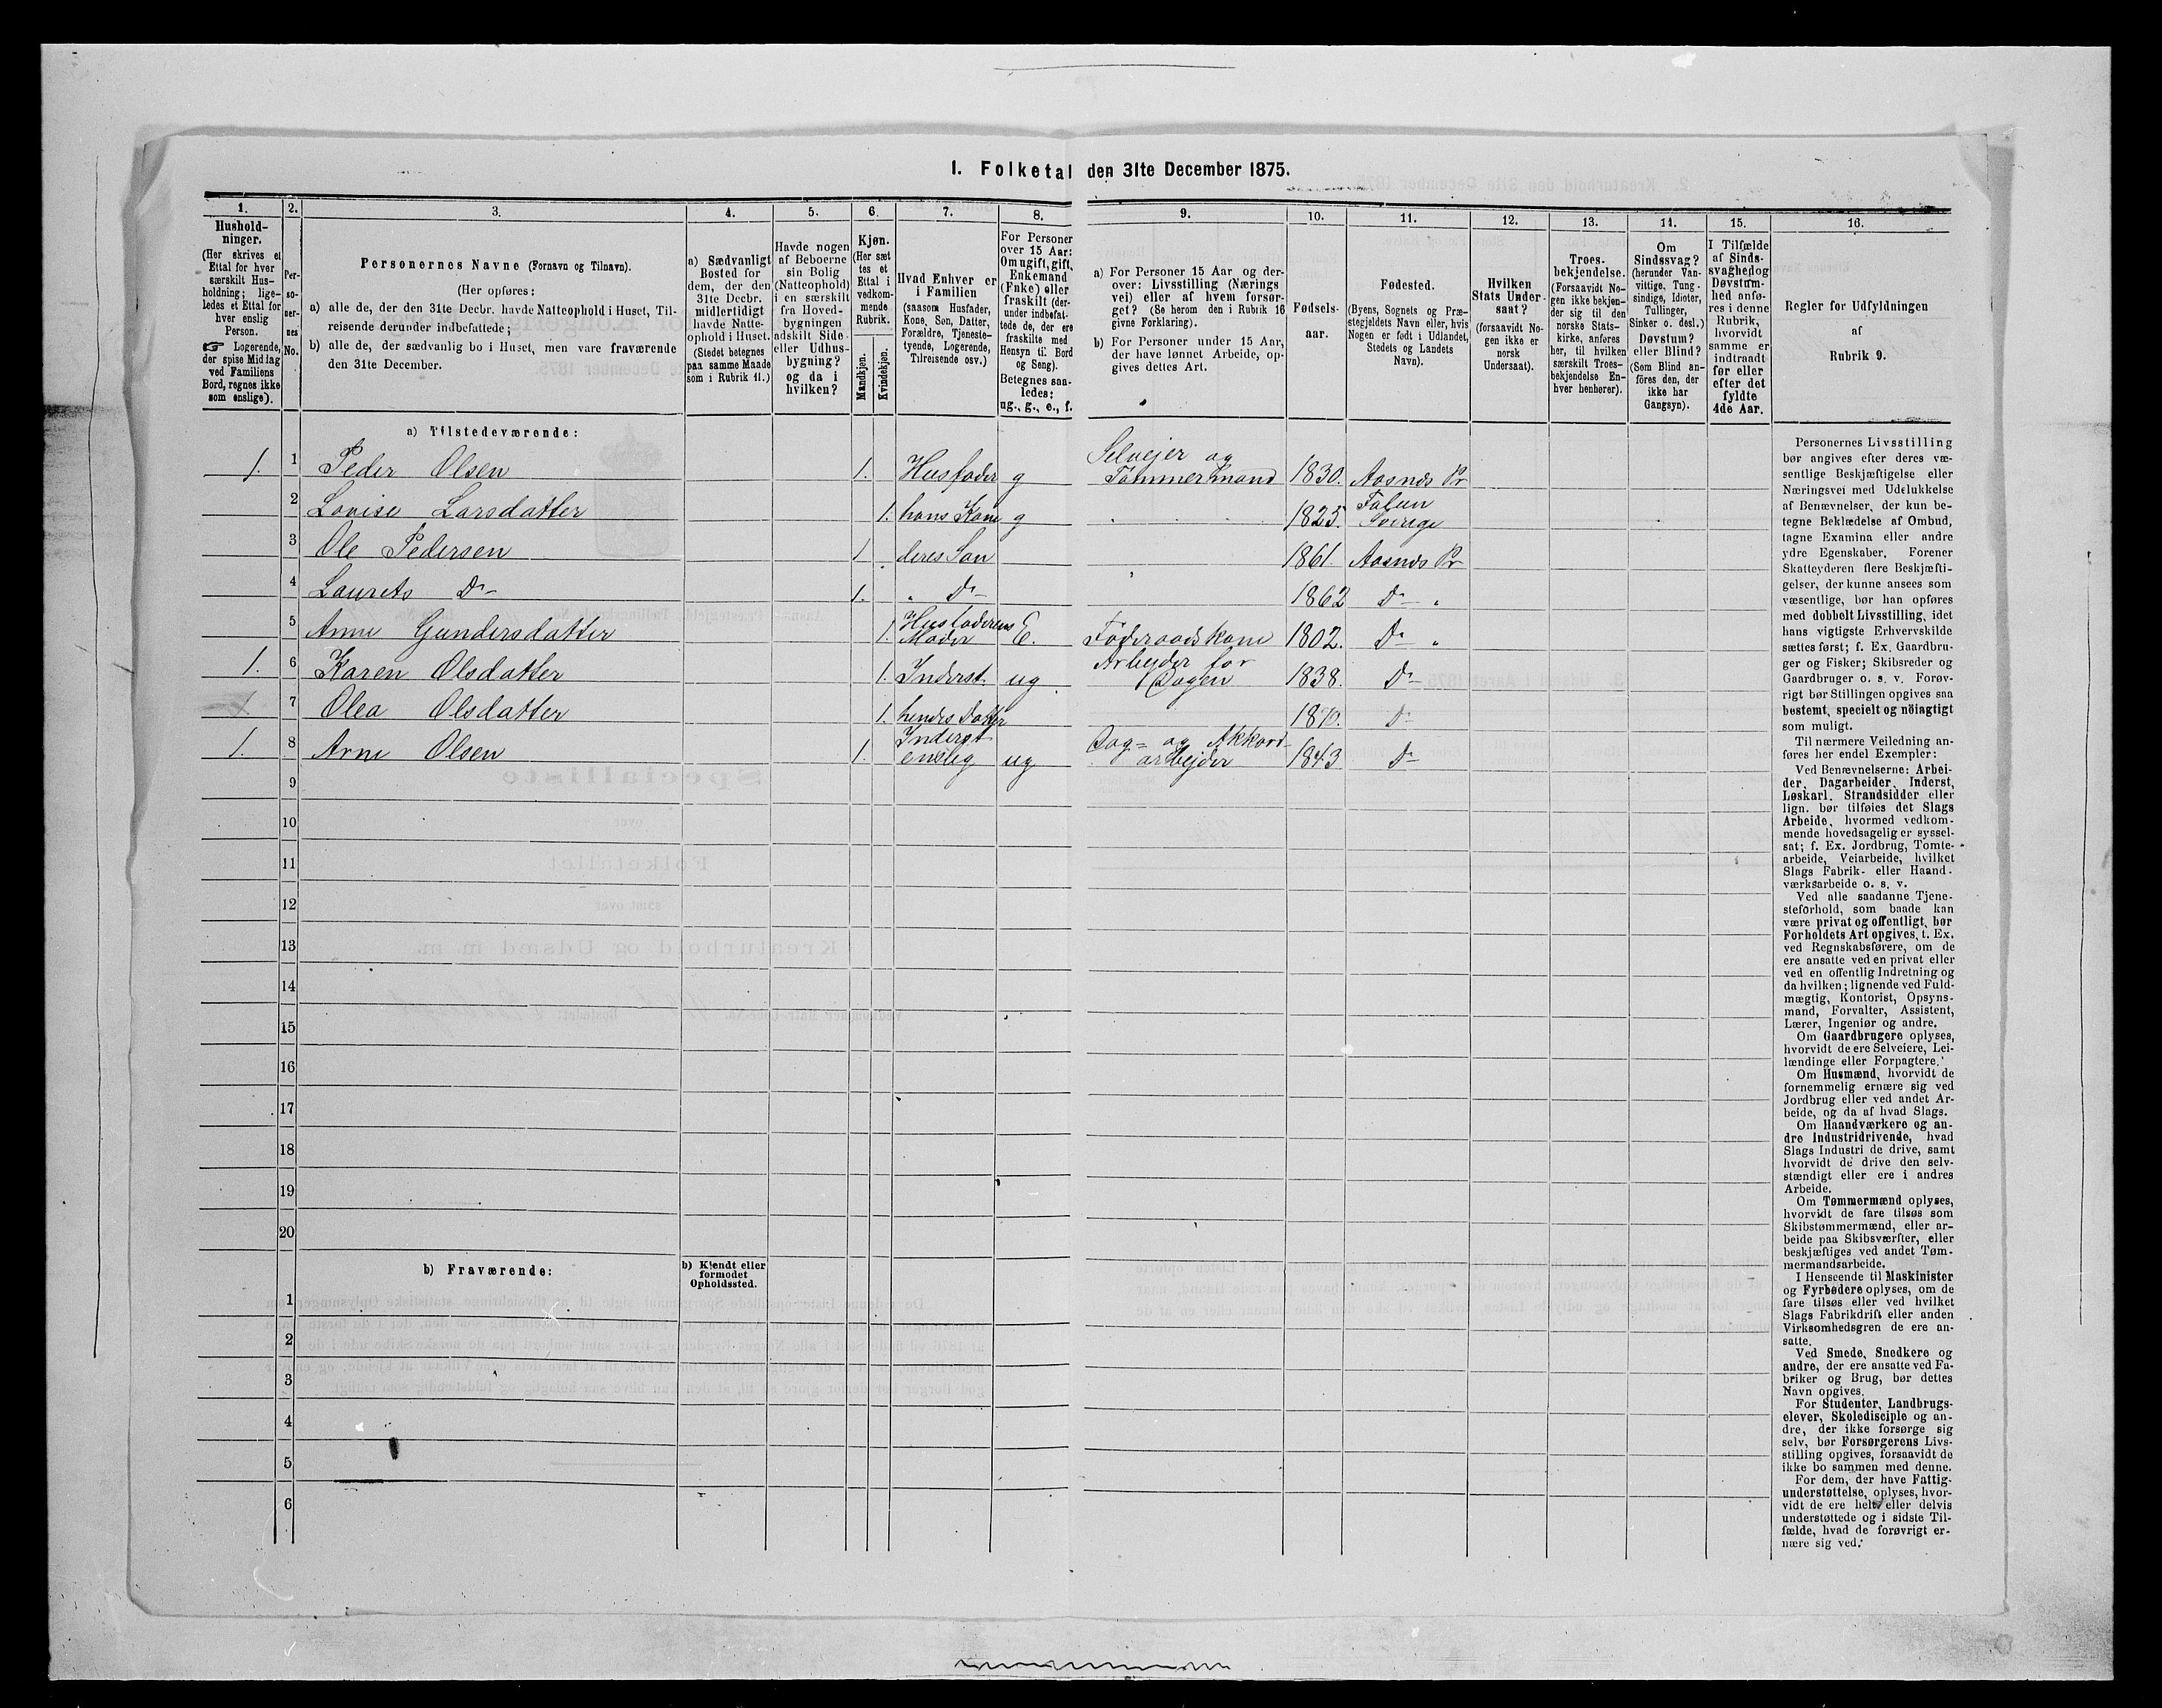 I. Folketal den 31te December 1875.
1.
Hushold-
ninger.
(Her skrives et
Ettal for hver
særskilt Hus-
holdning; lige-
ledes et Ettal for
hver enslig
Person.
☞ Logerende,
der spise Middag
ved Familiens
Bord, regnes ikke
som enslige).
2.
Per-
so-
ner-
nes
No.
3.
Personernes Navne (Fornavn og Tilnavn).
(Her opføres:
a) alle de, der den 31te Decbr. havde Natteophold i Huset, Til-
reisende derunder indbefattede;
b) alle de, der sædvanlig bo i Huset, men vare fraværende
den 31te December.
4.
a) Sædvanligt
Bosted for
dem, der den
31te Decbr.
midlertidigt
havde Natte-
ophold i Huset.
(Stedet betegnes
paa samme Maade
som i Rubrik 11.)
5.
Havde nogen
af Beboerne
sin Bolig
(Natteophold)
i en særskilt
fra Hoved-
bygningen
adskilt Side-
eller Udhus-
bygning?
og da i
hvilken?
6.
Kjøn.
(Her sæt-
tes et
Ettal i
vedkom-
mende
Rubrik.
Mandkjøn.
Kvindekjøn.
7.
Hvad Enhver er
i Familien
(saasom Husfader,
Kone, Søn, Datter,
Forældre, Tjeneste-
tyende, Logerende,
Tilreisende osv.)
8.
For Personer
over 15 Aar:
Om ugift, gift,
Enkemand
(Enke) eller
fraskilt (der-
under indbefat-
tede de, der ere
fraskilte med
Hensyn til Bord
og Seng).
Betegnes saa-
ledes:
ug., g., e., f.
9.
a) For Personer 15 Aar og der-
over: Livsstilling (Nærings-
vei) eller af hvem forsør-
get? (Se herom den i Rubrik 16
givne Forklaring).
b) For Personer under 15 Aar,
der have lønnet Arbeide, op-
gives dettes Art.
10.
Fødsels-
aar.
11.
Fødested.
(Byens, Sognets og Præ-
stegjeldets Navn eller, hvis
Nogen er født i Udlandet,
Stedets og Landets
Navn).
12.
Hvilken
Stats Under-
saat?
(forsaavidt No-
gen ikke er
norsk
Undersaat).
13.
Troes-
bekjendelse.
(Forsaavidt No-
gen ikke bekjen-
der sig til den
norske Stats-
kirke, anføres
her, til hvilken
særskilt Troes-
bekjendelse En-
hver henhører).
14.
Om
Sindssvag?
(herunder Van-
vittige, Tung-
sindige, Idioter,
Tullinger,
Sinker o. desl.)
Døvstum?
eller Blind?
(Som Blind an-
føres den, der
ikke har
Gangsyn).
15.
I Tilfælde
af Sinds-
svaghed og
Døvstum-
hed anfø-
res i denne
Rubrik,
hvorvidt
samme er
indtraadt
før eller
efter det
fyldte
4de Aar.
16.
Regler for Udfyldningen
af
Rubrik 9.
a) Tilstedeværende:
1. 1 Peder Olsen 1. Husfader g Selvejer og Tømmermand 1830. Aasnes Pr
2 Lovise Larsdatter 1. hans Kone g 1825. Falun Sverige
3 Ole Pedersen 1 deres Søn 1861. Aasnes Pr
4 Laurets Do 1. " Do 1862 Do "
5 Anne Gundersdatter 1. Husfaderens Moder E. Føderaadskone 1802. Do "
1. 6 Karen Olsdatter 1. Inderst. ug Arbejder for Dagen 1838. Do
7 Olea Olsdatter 1. hendes Datter 1870. Do
1. 8 Arne Olsen 1. Inderst enslig ug Dag- og Akkord- arbejder 1843 Do
9
10
11
12
13
14
15
16
17
18
19
20
b) Fraværende:
b) Kjendt eller
formodet
Opholdssted.
1
2
3
4
5
6
Personernes Livsstilling
bør angives efter deres væ-
sentlige Beskjæftigelse eller
Næringsvei med Udelukkelse
af Benævnelser, der kun be-
tegne Beklædelse af Ombud,
tagne Examina eller andre
ydre Egenskaber. Forener
Skatteyderen flere Beskjæfti-
gelser, der kunne ansees som
væsentlige, bør han opføres
med dobbelt Livsstilling, idet
hans vigtigste Erhvervskilde
sættes først; f. Ex. Gaardbru-
ger og Fisker; Skibsreder og
Gaardbruger o. s. v. Forøv-
rigt bør Stillingen opgives saa
bestemt, specielt og nöiagtigt
som muligt.
Til nærmere Veiledning an-
føres her endel Exempler:
Ved Benævnelserne: Arbei-
der, Dagarbeider, Inderst,
Løskarl, Strandsidder eller
lign. bør tilføies det Slags
Arbeide, hvormed vedkom-
mende hovedsagelig er syssel-
sat; f. Ex. Jordbrug, Tomte-
arbeide, Veiarbeide, hvilket
Slags Fabrik- eller Haand-
værksarbeide o. s. v.
Ved alle saadanne Tjene-
steforhold, som baade kan
være privat og offentligt, bør
Forholdets Art opgives, t. Ex.
ved Regnskabsførere, om de
ere ansatte ved en privat eller
ved en offentlig Indretning og
da hvilken; lignende ved Fuld-
mægtig, Kontorist, Opsyns-
mand, Forvalter, Assistent,
Lærer, Ingeniør og andre.
Om Gaardbrugere oplyses,
hvorvidt de ere Selveiere, Lei-
lændinge eller Forpagtere.
Om Husmænd, hvorvidt de
fornemmelig ernære sig ved
Jordbrug eller ved andet Ar-
beide, og da af hvad Slags.
Om Haandværkere og an-
dre Industridrivende, hvad
Slags Industri de drive, samt
hvorvidt de drive den selv-
stændigt eller ere i andres
Arbeide.
Om Tømmermænd oplyses,
hvorvidt de fare tilsøs som
Skibstømmermænd, eller ar-
beide paa Skibsværfter, eller
beskjæftiges ved andet Tøm-
mermandsarbeide.
I Henseende til Maskinister
og Fyrbødere oplyses, om de
fare tilsøs eller ved hvilket
Slags Fabrikdrift eller anden
Virksomhedsgren de ere an-
satte.
Ved Smede, Snedkere og
andre, der ere ansatte ved Fa-
briker og Brug, bør dettes
Navn opgives.
For Studenter, Landbrugs-
elever, Skoledisciple og an-
dre, der ikke forsørge sig
selv, bør Forsørgerens Livs-
stilling opgives, forsaavidt de
ikke bo sammen med denne.
For dem, der have Fattig-
understøttelse, oplyses, hvor-
vidt de ere helt eller delvis
understøttede og i sidste Til-
fælde, hvad de forøvrigt er-
nære sig ved.